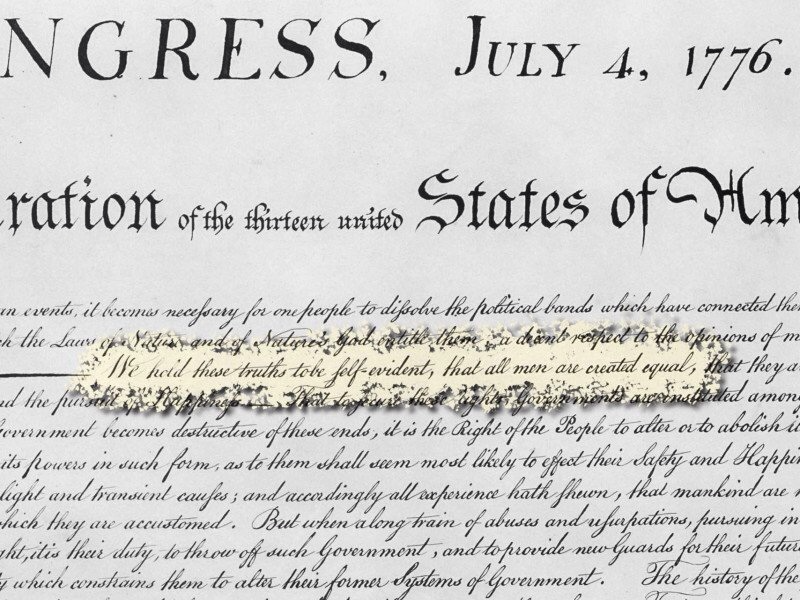 NGRESS, JULY 4, 1776.
ration of the thirteen united States of Am
an events, it becomes necessary for one people to dissolve the political bands which have connected them
ch the Laws of Nature and of Nature's God entitle them, a decent respect to the opinions of m
We hold these truths to be self-evident, that all men are created equal, that they ar
nd the pursuit of Happiness. — That to secure these rights, Governments are instituted among
Government becomes destructive of these ends, it is the Right of the People to alter or to abolish it
its powers in such form, as to them shall seem most likely to effect their Safety and Happin
light and transient causes; and accordingly all experience hath shewn, that mankind are
hich they are accustomed. But when a long train of abuses and usurpations, pursuing in
ght, it is their duty, to throw off such Government, and to provide new Guards for their future
y which constrains them to alter their former Systems of Government. The history of the